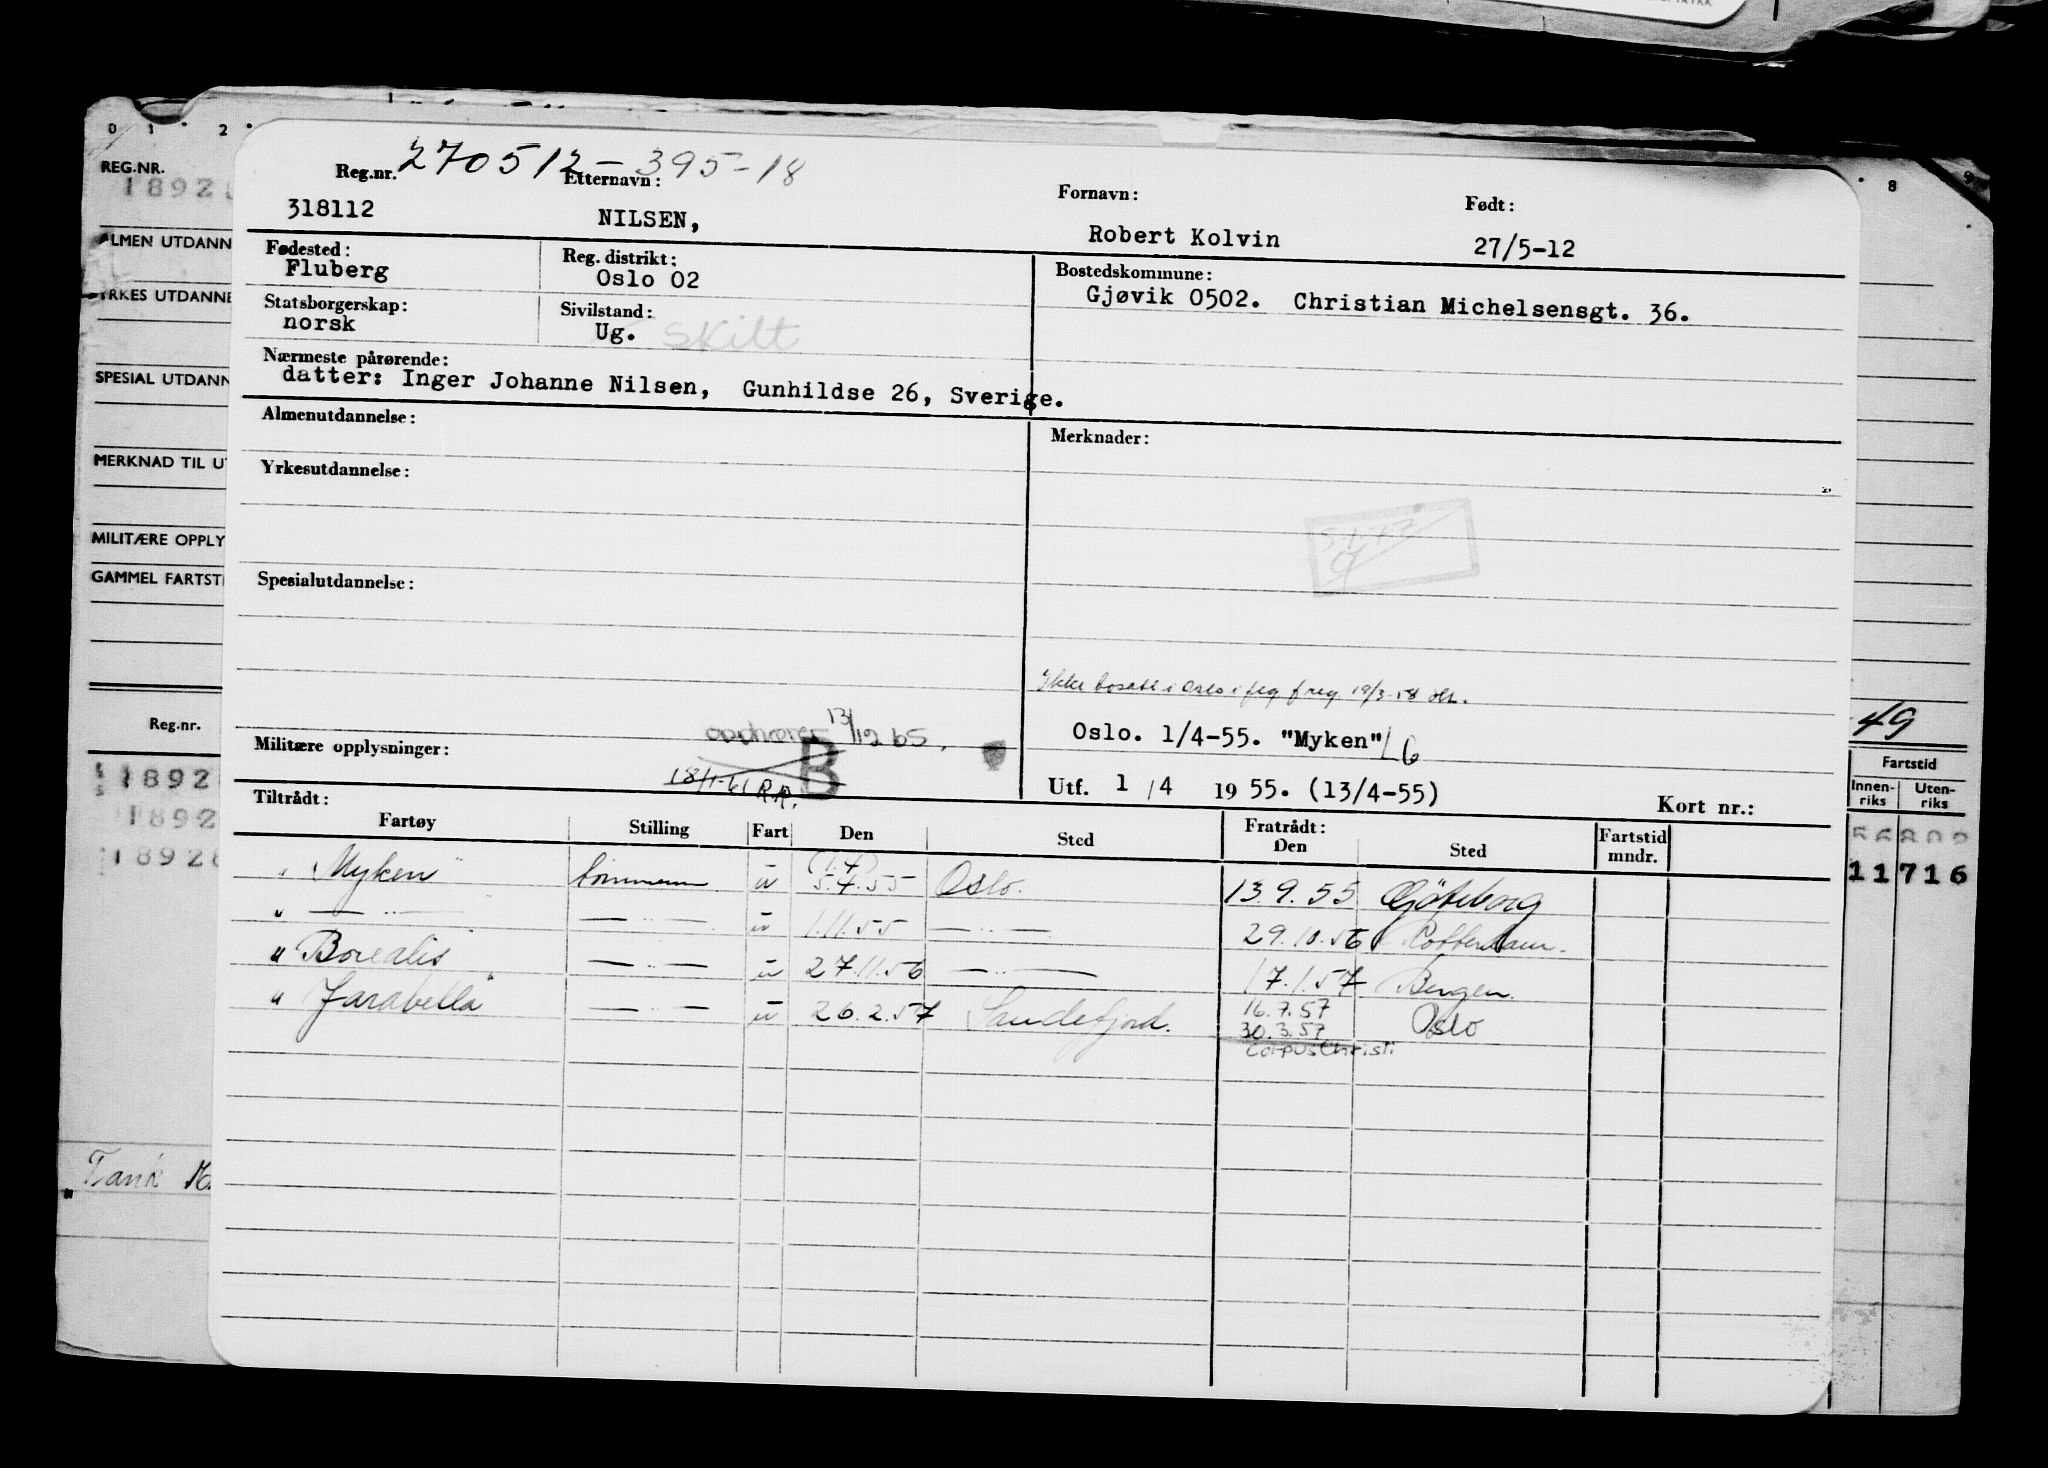 0 1 2
8 9
REG.NR.
1892
ALMEN UTDANN
YRKES UTDANNE
SPESIAL UTDANN
MERKNAD TIL U
MILITÆRE OPPLY
GAMMEL FARTST
Reg.nr.
1892
1892
1892
Tank
270512-395-18
Reg.nr. Etternavn: Fornavn: Født:
318112 NILSEN, Robert Kolvin 27/5-12
Fødested: Reg. distrikt: Bostedskommune:
Fluberg Oslo 02 Gjøvik 0502. Christian Michelsensgt. 36.
Statsborgerskap: Sivilstand:
norsk Ug. skilt
Nærmeste pårørende:
datter: Inger Johanne Nilsen, Gunhildse 26, Sverige.
Almenutdannelse: Merknader:
Yrkesutdannelse:
5.1.73
Spesialutdannelse:
Ikke bosatt i Oslo i flg freg 19/3-58
13/12 65.
Oslo. 1/4-55. "Myken" LG
Militære opplysninger: B
18/1-61 R.R.
Utf. 1 / 4 19 55. (13/4-55) Kort nr.:
Tiltrådt: Fratrådt:
Fartøy Stilling Fart Den Sted Den Sted Fartstid mndr.
" Myken " u 1.4 5.4.55 Oslo. 13.9.55 Göteborg
" — " — — " — u 1.11.55 — " — 29.10.56 Rotterdam.
" Borealis — " — u 27.11.56 — " — 17.1.57 Bergen.
" Jarabella " — " — u 26.2.57 Sandefjord. 16.7.57 Oslo
30.3.57
Corpus Christi
49
Fartstid
Innenriks Utenriks
11 716